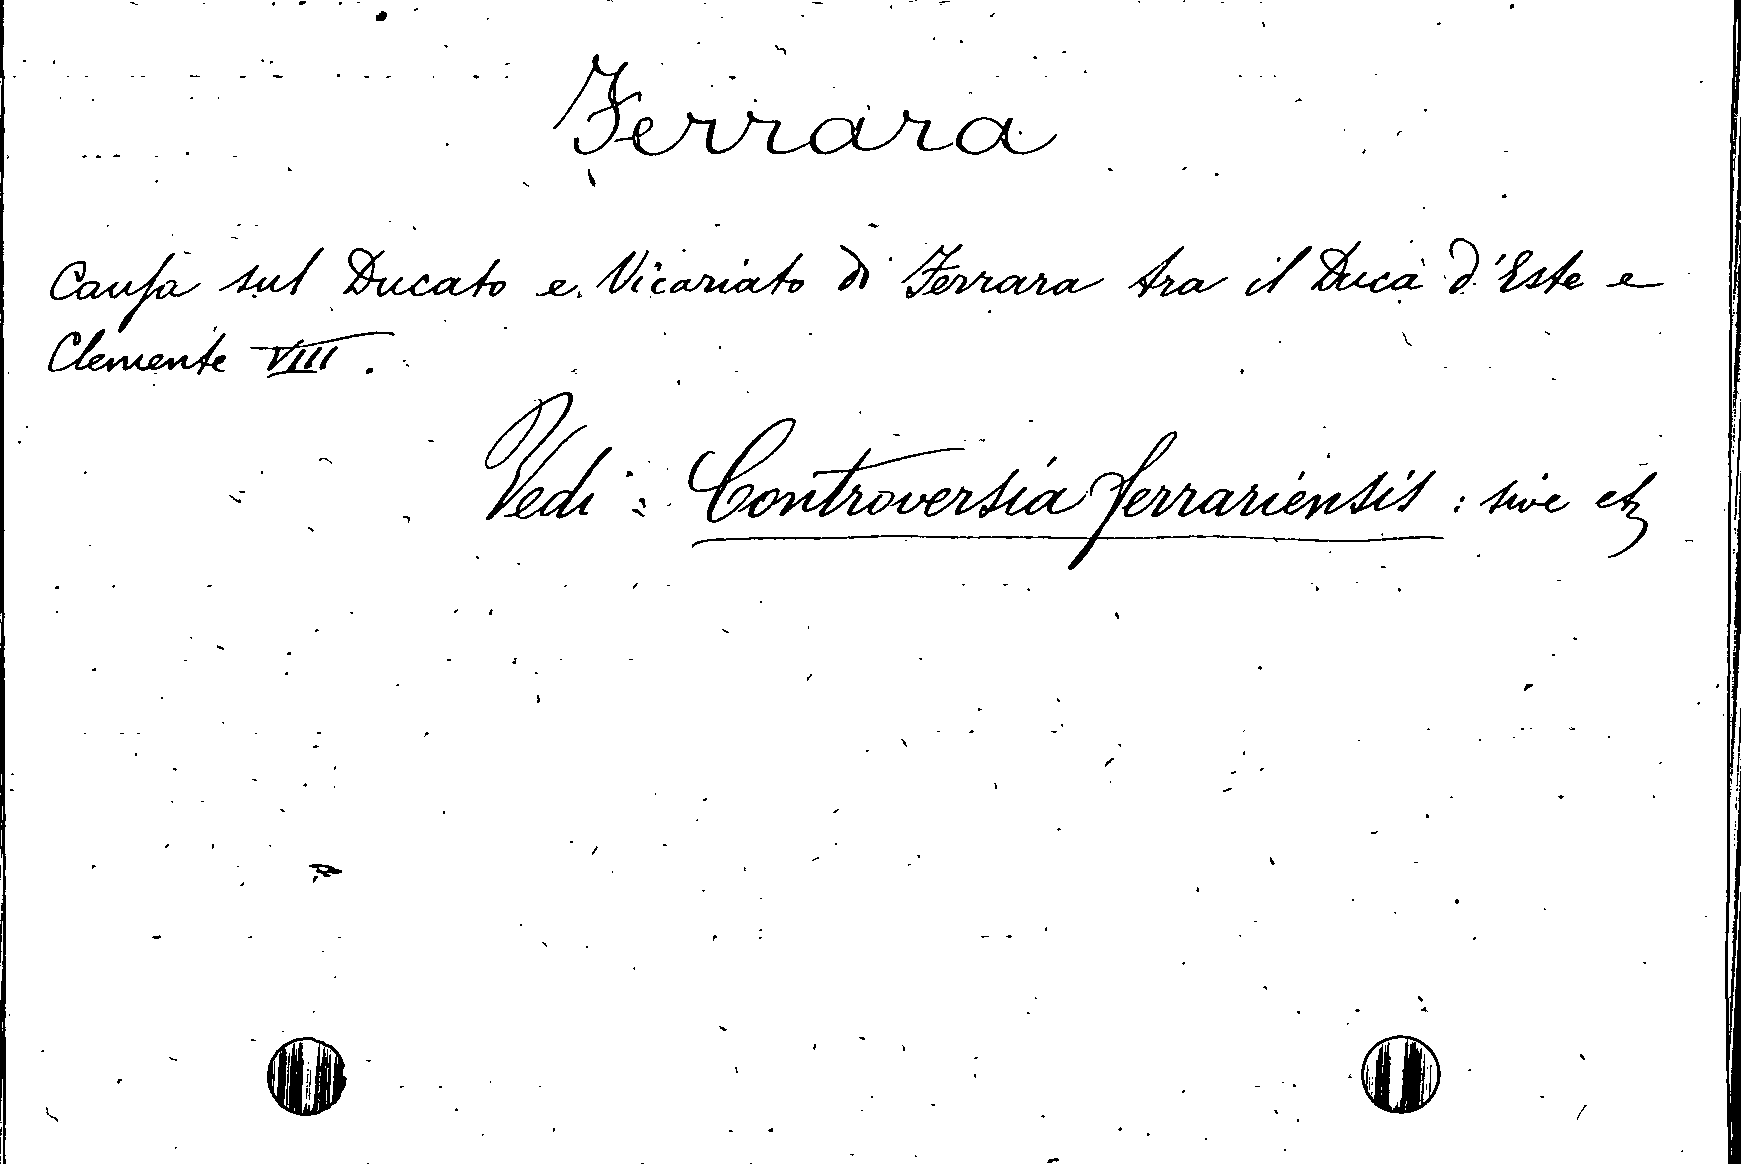 Ferrara
Causa sul Ducato e Vicariato di Ferrara tra il Duca d'Este e
Clemente VIII.
Vedi: Controversia ferrariensis: sive etc